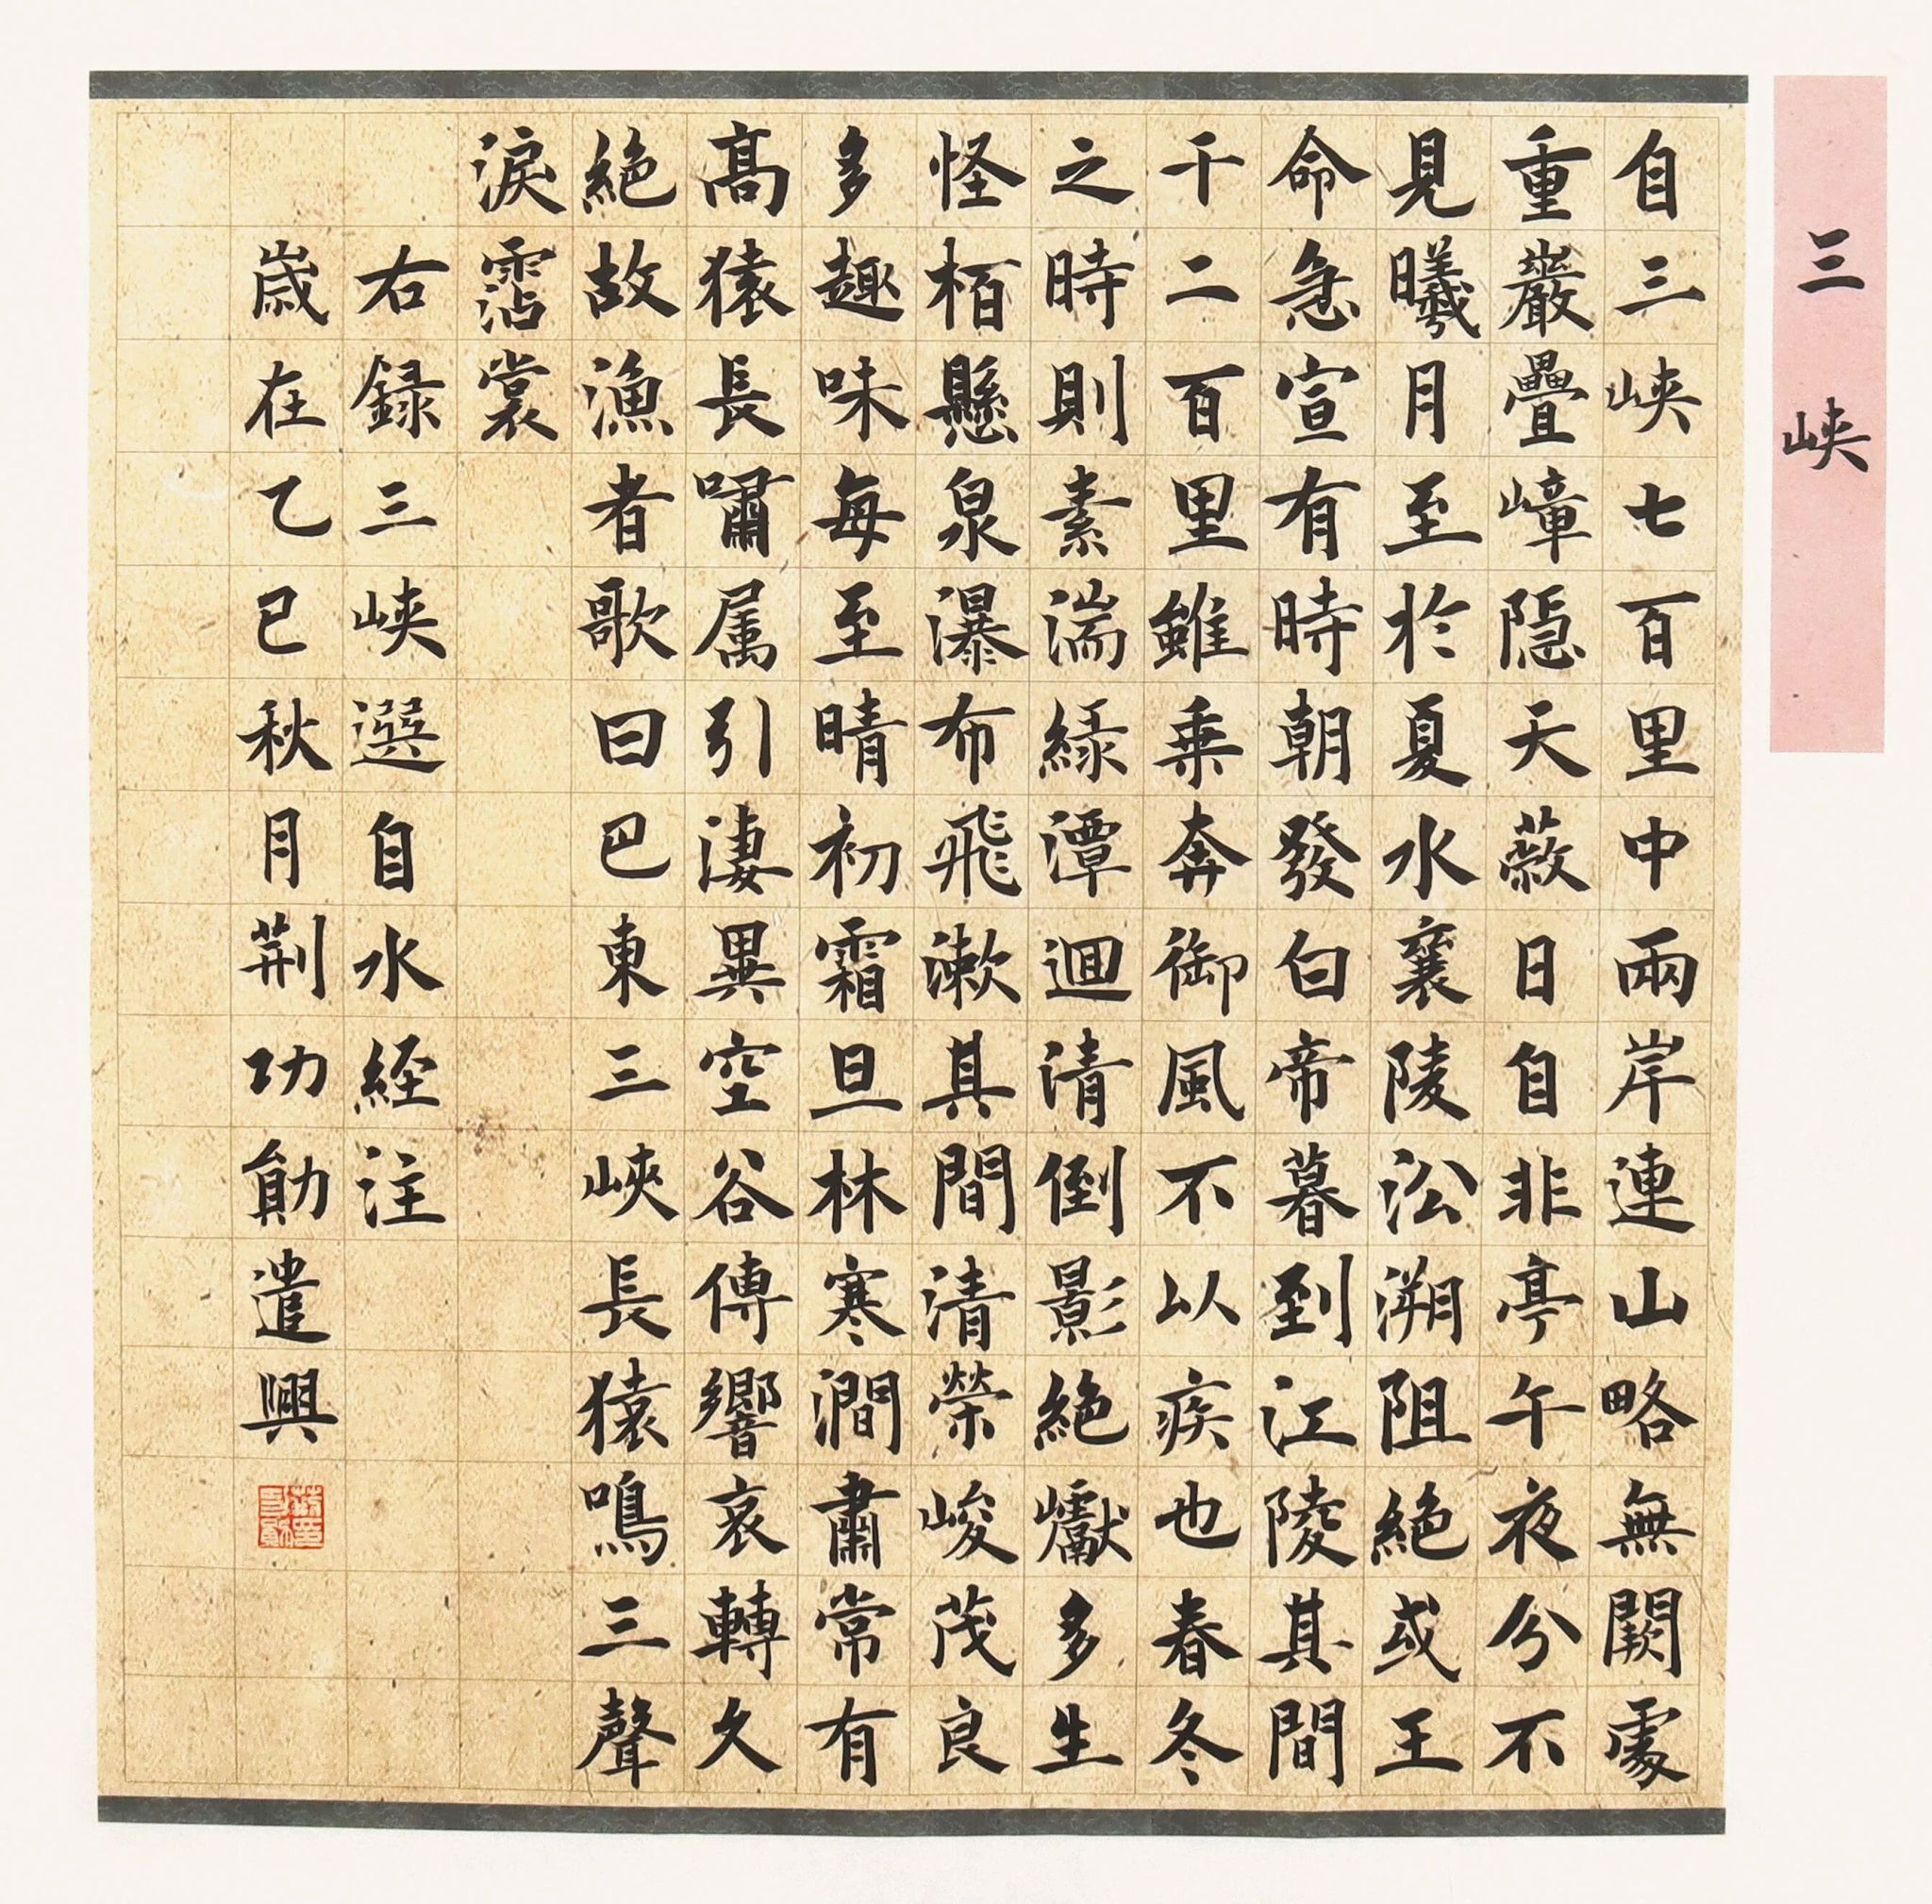 三峽
自三峽七百里中兩岸連山略無闕處
重巖疊嶂隠天蔽日自非亭午夜分不
見曦月至於夏水襄陵沿溯阻絶或王
命急宣有時朝發白帝暮到江陵其間
千二百里雖乗奔御風不以疾也春冬
之時則素湍緑潭迴清倒影絶巘多生
怪栢懸泉瀑布飛漱其間清榮峻茂良
多趣味每至晴初霜旦林寒澗肅常有
髙猿長嘯属引淒異空谷傳響哀轉久
絶故漁者歌曰巴東三峽長猿鳴三聲
淚霑裳
右録三峽選自水經注
歲在乙巳秋月荆功勛遣興